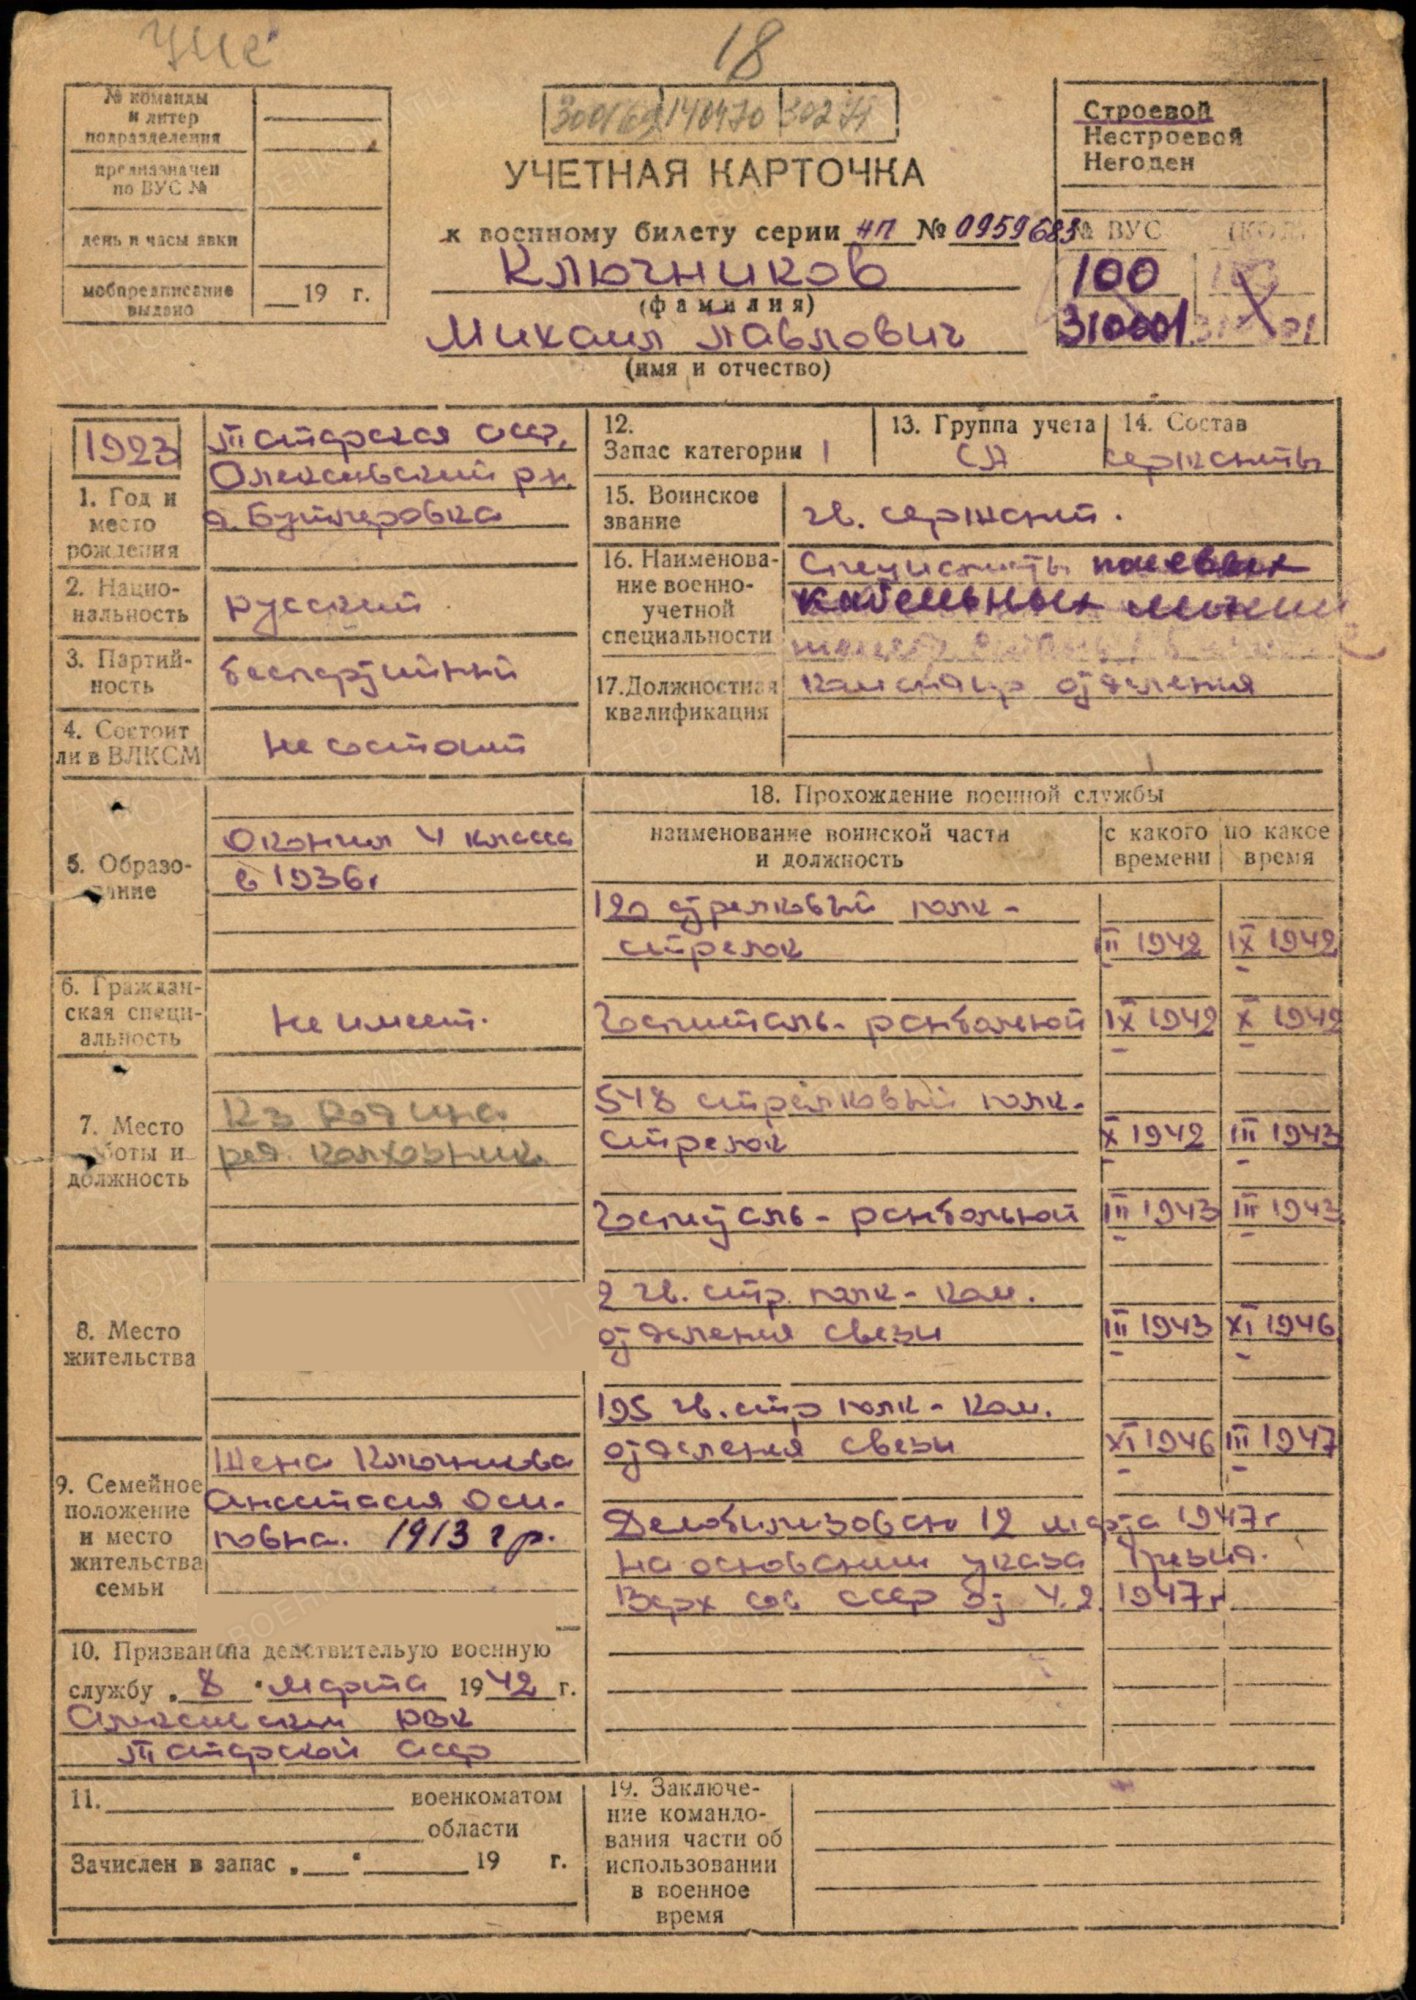 18
№ команды
и литер
подразделения
предназначен
по ВУС №
день и часы явки
мобпредписание
выдано
19 г.
300169 140470 30271
УЧЕТНАЯ КАРТОЧКА
к военному билету серии НП № 0959683
Ключников
(фамилия)
Михаил Павлович
(имя и отчество)
Строевой
Нестроевой
Негоден
№ ВУС (КОД)
100
310001
1923
1. Год и
место
рождения
Татарская ссср,
Олексивский рн.
д. Бутлеровка
2. Нацио-
нальность
русский
3. Партий-
ность
беспартийный
4. Состоит
ли в ВЛКСМ
не состоит
5. Образо-
вание
Окончил 4 класса
в 1936г
6. Граждан-
ская специ-
альность
не имеет.
7. Место
работы и
должность
Кз Родина
ряд. колхозник.
8. Место
жительства
9. Семейное
положение
и место
жительства
семьи
Жена Ключникова
Анастасия Оси-
повна. 1913 г р.
10. Призван на действительую военную
службу „ 8 " марта 1942 г.
Алексеевским РВК
Татарской ссср
11. военкоматом
области
Зачислен в запас „ " 19 г.
12.
Запас категории 1
13. Группа учета
СА
14. Состав
сержанты
15. Воинское
звание
гв. сержант.
16. Наименова-
ние военно-
учетной
специальности
Специалисты полевых
кабельных линий
17. Должностная
квалификация
командир отделения
18. Прохождение военной службы
наименование воинской части
и должность
с какого
времени
по какое
время
120 стрелковый полк -
стрелок III 1942 IX 1942
Госпиталь - ранбольной IX 1942 X 1942
548 стрелковый полк -
стрелок X 1942 III 1943
Госпиталь - ранбольной III 1943 III 1943
2 гв. стр. полк - ком.
отделения связи III 1943 XI 1946
195 гв. стр полк - ком.
отделения связи XI 1946 III 1947
Демобилизован 12 марта 1947г
на основании указа Презид.
Верх сов ссср от 4.2. 1947г
19. Заключе-
ние командо-
вания части об
использовании
в военное
время